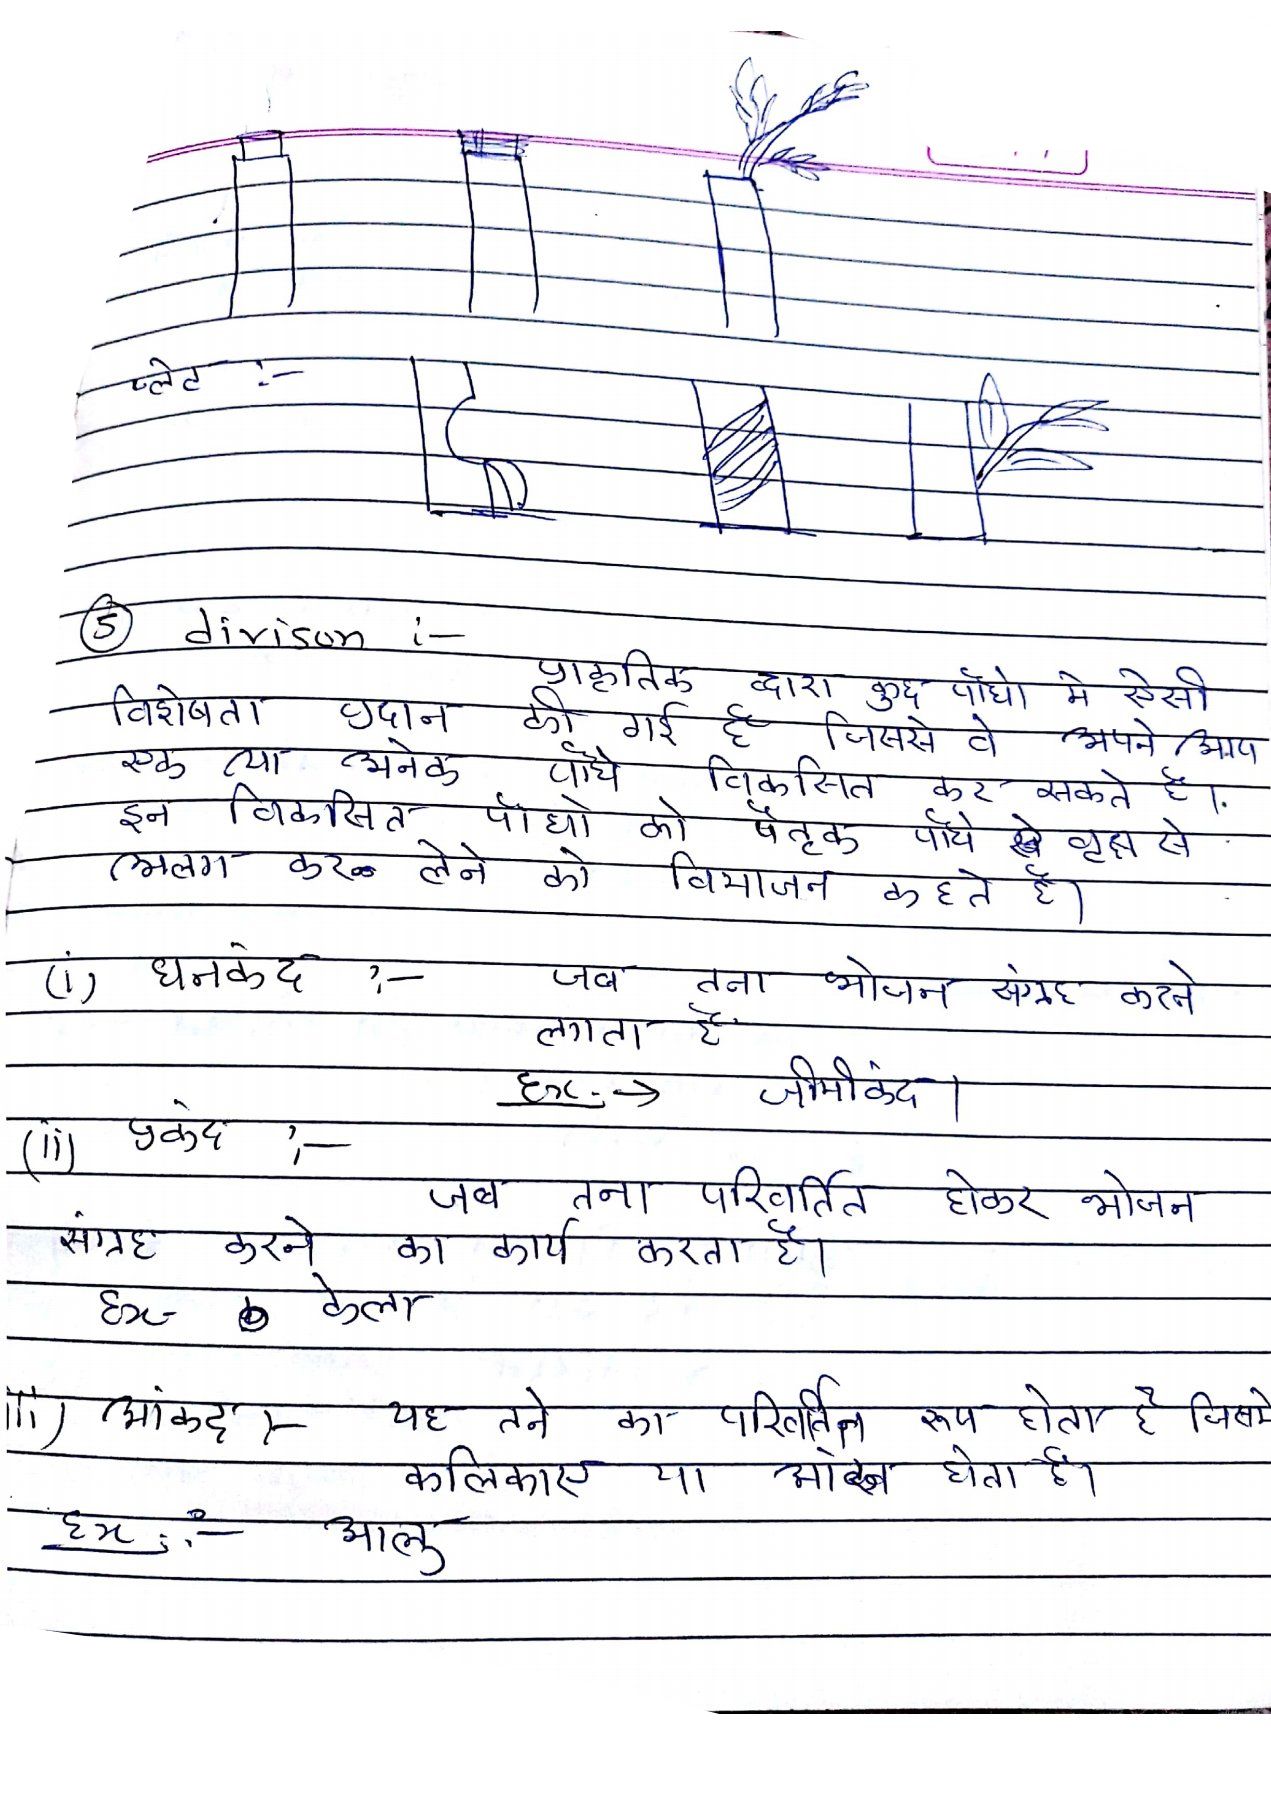 प्लेट :-
⑤ divison :-
प्राकृतिक द्वारा कुछ पौधो मे ऐसी
विशेषता प्रदान की गई है जिससे वे अपने आप
एक या अनेक पौधे विकसित कर सकते है।
इन विकसित पौधो को पैतृक पौधे वृक्ष से
अलग कर लेने को विभाजन कहते है।
(i) धनकंद :- जब तना भोजन संग्रह करने
लगता है
Ex. → जीमीकंद।
(ii) प्रकंद :-
जब तना परिवर्तित होकर भोजन
संग्रह करने का कार्य करता है।
Ex- केला
iii) आंकद :- यह तने का परिवर्तित रूप होता है जिसमे
कलिकाए या होता है।
Ex :- आलु